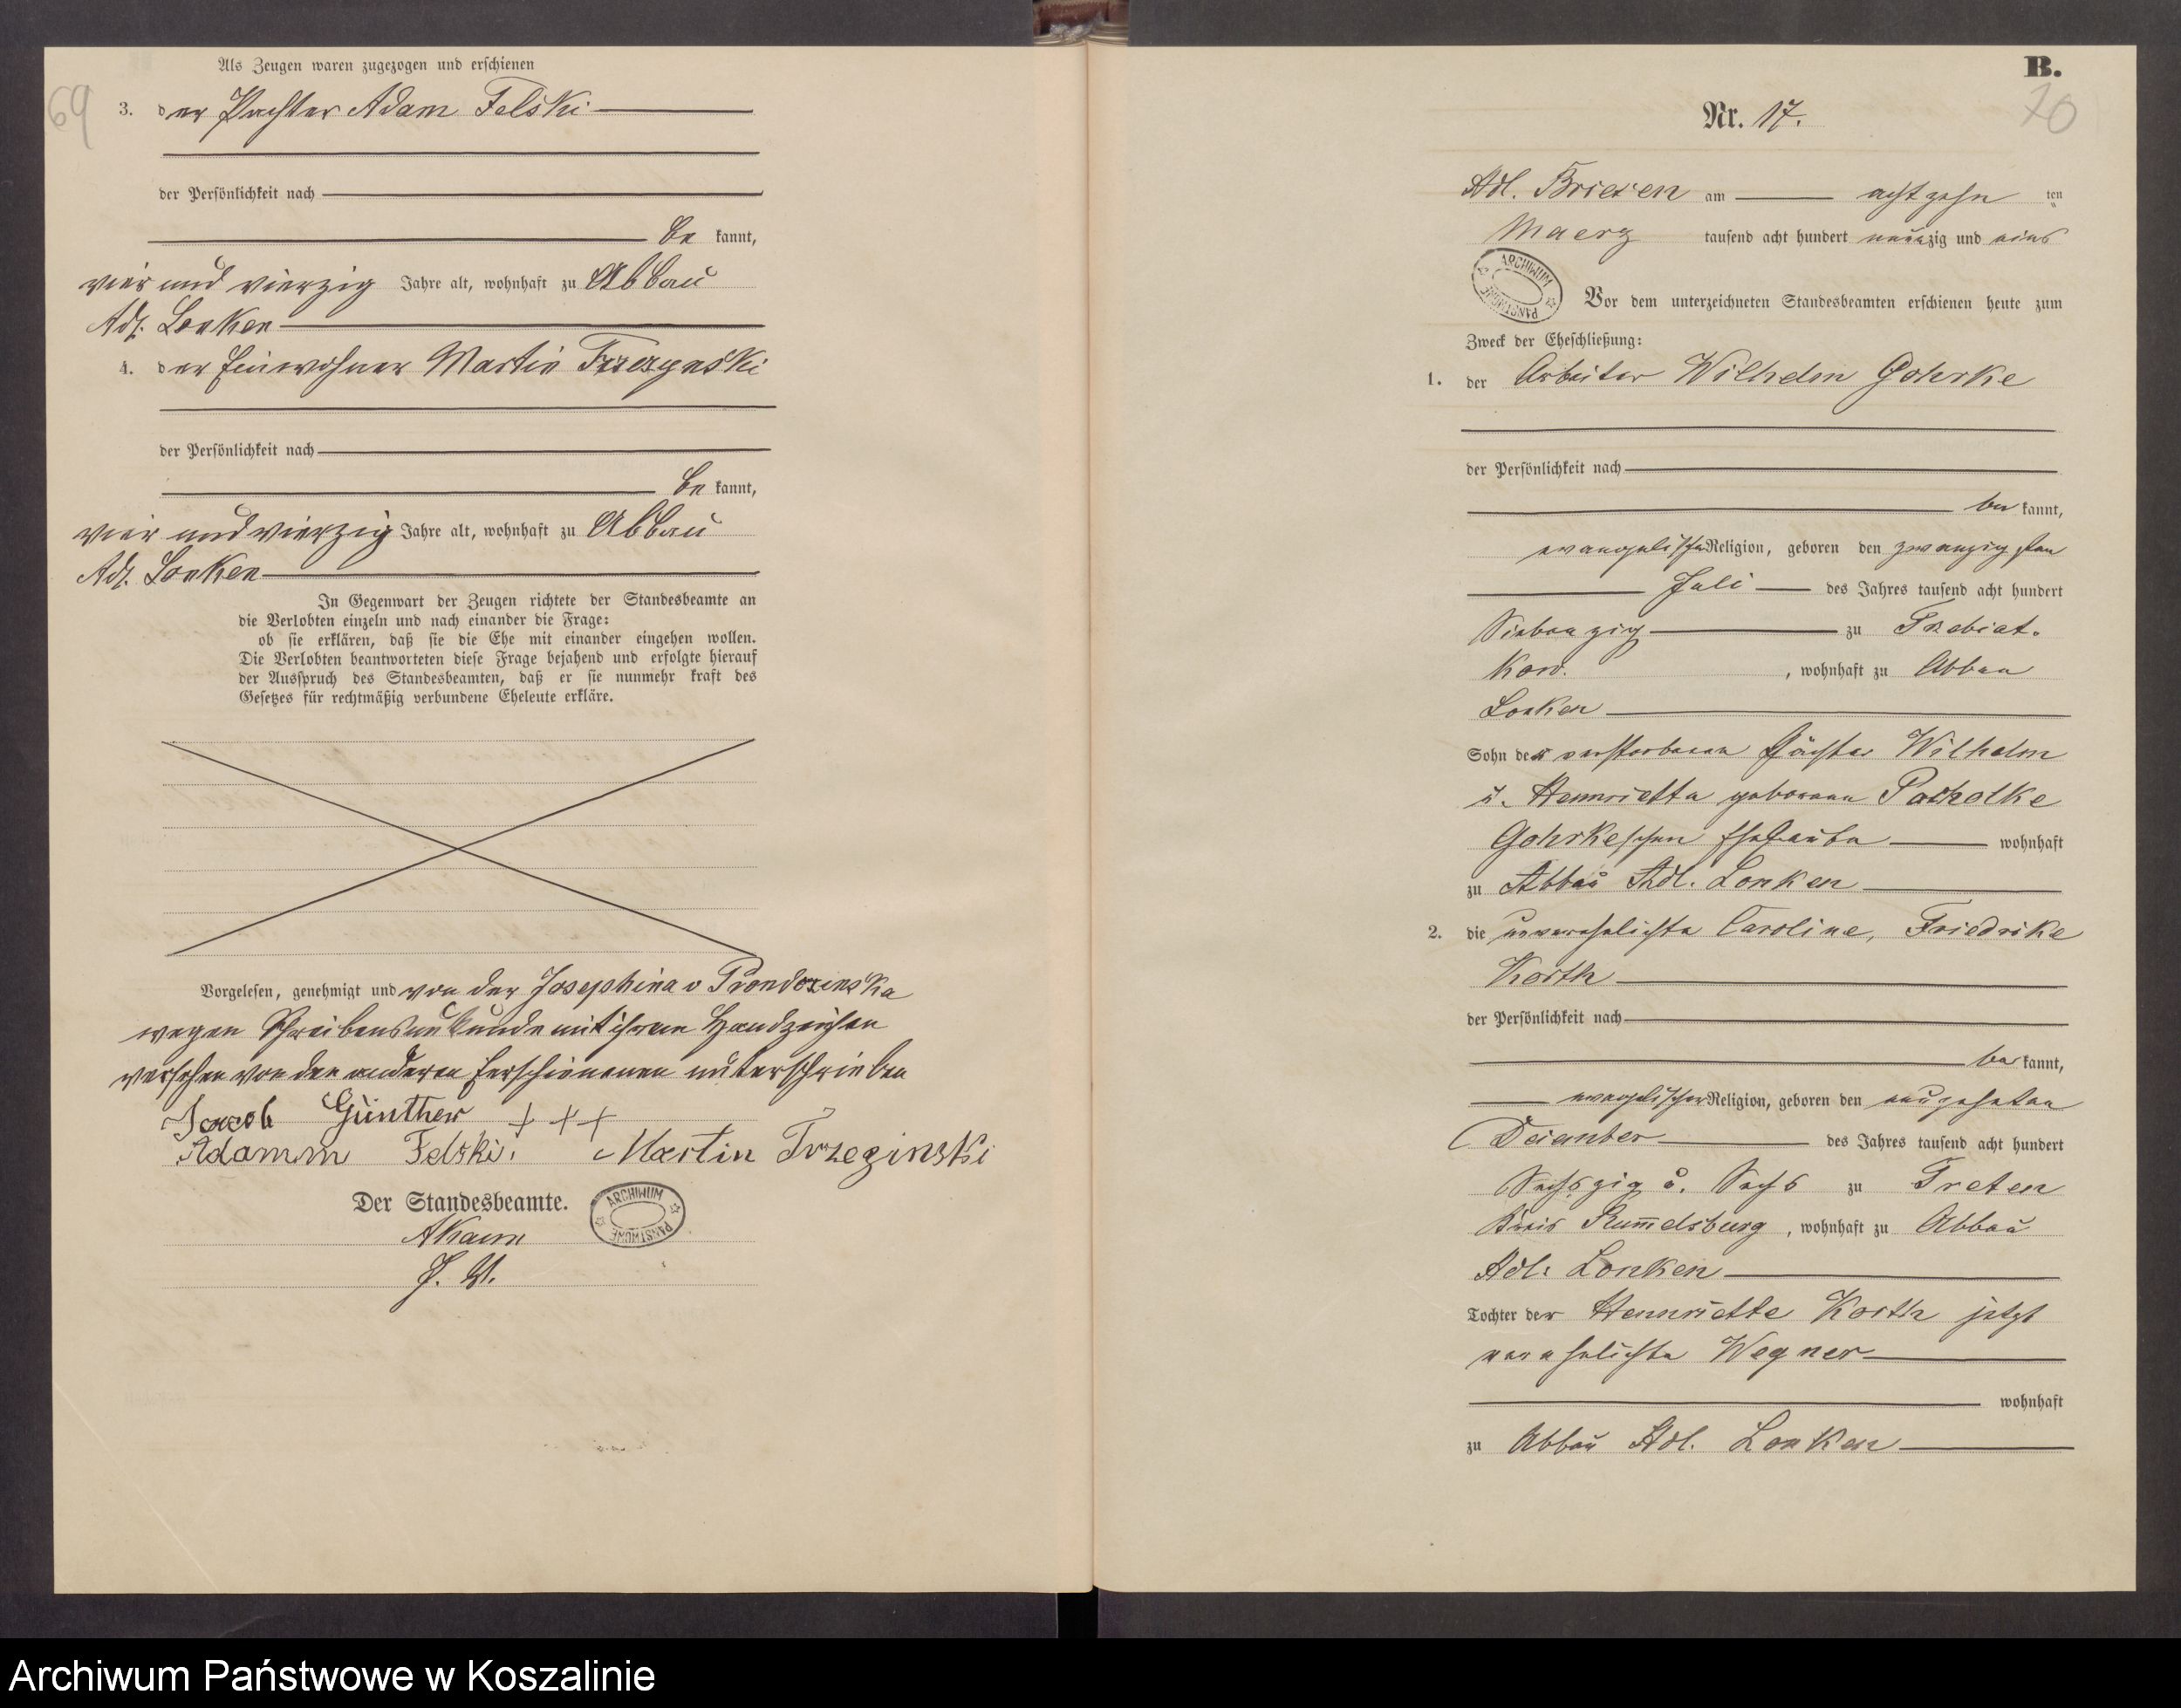 69
Als Zeugen waren zugezogen und erschienen
3. der Pachter Adam Felski
der Persönlichkeit nach
be kannt,
vier und vierzig Jahre alt, wohnhaft zu Abbau
Adl. Lonken
4. der Einwohner Martin Trzezynski
der Persönlichkeit nach
be kannt,
vier und vierzig Jahre alt, wohnhaft zu Abbau
Adl. Lonken
In Gegenwart der Zeugen richtete der Standesbeamte an
die Verlobten einzeln und nach einander die Frage:
ob sie erklären, daß sie die Ehe mit einander eingehen wollen.
Die Verlobten beantworteten diese Frage bejahend und erfolgte hierauf
der Ausspruch des Standesbeamten, daß er sie nunmehr kraft des
Gesetzes für rechtmäßig verbundene Eheleute erkläre.
Vorgelesen, genehmigt und von der Josephina v Prondzinska
wegen Schreibensunkunde mit ihrem Handzeichen
versehen von den anderen Erschienenen unterschrieben
Jacob Günther + + +
Adamm Felski. Martin Trzezinski
Der Standesbeamte.
ARCHIWUM PAŃSTWOWE
J. V.
B.
70
Nr. 17.
Adl. Briesen am achtzehn ten
Maerz tausend acht hundert neunzig und eins
ARCHIWUM PAŃSTWOWE
Vor dem unterzeichneten Standesbeamten erschienen heute zum
Zweck der Eheschließung:
1. der Arbeiter Wilhelm Gohrke
der Persönlichkeit nach
be kannt,
evangelischer Religion, geboren den zwanzigsten
Juli des Jahres tausend acht hundert
Siebenzig zu Trebiat-
kow. , wohnhaft zu Abbau
Lonken
Sohn der verstorbenen Pächter Wilhelm
u. Hennrietta geborenen Pacholke
Gohrkeschen Eheleute wohnhaft
zu Abbau Adl. Lonken
2. die unverehelichte Caroline, Friedrike
Korth
der Persönlichkeit nach
be kannt,
evangelischer Religion, geboren den neunzehnten
Dezember des Jahres tausend acht hundert
Sechszig u. Sechs zu Treten
Kreis Rummelsburg , wohnhaft zu Abbau
Adl. Lonken
Tochter der Hennriette Korth jetzt
verehelichte Wegner
wohnhaft
zu Abbau Adl. Lonken
Archiwum Państwowe w Koszalinie